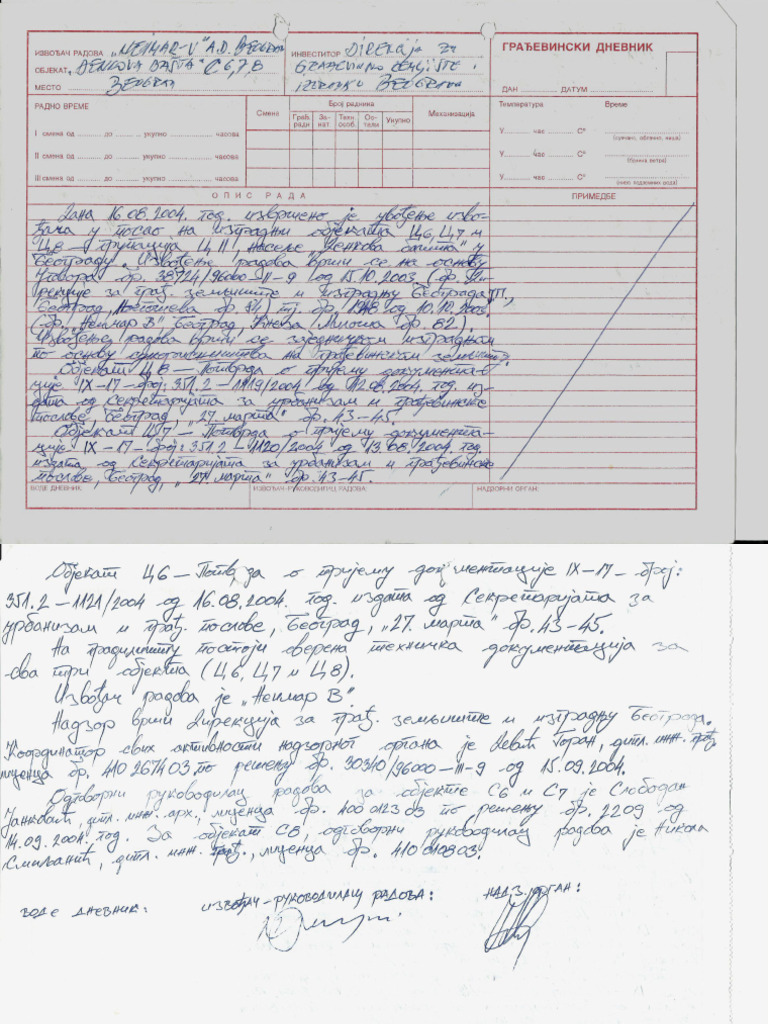 ИЗВОЂАЧ РАДОВА „NEIMAR-V" A.D. BEOGRAD
ОБЈЕКАТ „DENKOVA BAŠTA" C 6,7,8
МЕСТО BEOGRAD
ИНВЕСТИТОР Direkcija za
građevinsko zemljište i
izgradnju Beograda
ГРАЂЕВИНСКИ ДНЕВНИК
ДАН ДАТУМ
РАДНО ВРЕМЕ
I смена од до укупно часова
II смена од до укупно часова
III смена од до укупно часова
Смена
Број радника
Грађ. ради
За- нат
Техн. особ.
Ос- тали
Укупно
Механизација
Температура Време
У час C°
У час C°
У час C°
ОПИС РАДА
ПРИМЕДБЕ
Дана 16.08.2004. год. извршено је увођење изво-
ђача у посао на изградњи објеката Ц6, Ц7 и
Ц8 – групација Ц II, насеље „Денкова башта" у
Београду. Извођење радова врши се на основу
Уговора бр. 38724/96000-II-9 од 15.10.2003. (бр. Ди-
рекције за грађ. земљиште и изградњу Београда ЈП,
Београд, Његошева бр. 84) тј. бр. 1248 од 10.10.2003.
(бр. „Неимар В", Београд, Кнеза Милоша бр. 82).
Извођење радова врши се заједничком изградњом
по основу сукорисништва на грађевинском земљишту.
Објекат Ц8 – Потврда о пријему документа-
ције IX-17-број: 351.2-1119/2004 од 12.08.2004. год. из-
дата од Секретаријата за урбанизам и грађевинске
послове, Београд, „27. марта" бр. 43-45.
Објекат Ц7 – Потврда о пријему документа-
ције IX-17-број: 351.2-1120/2004 од 13.08.2004. год.
издата од Секретаријата за урбанизам и грађевинске
послове, Београд, „27. марта" бр. 43-45.
ВОДЕ ДНЕВНИК: ИЗВОЂАЧ-РУКОВОДИЛАЦ РАДОВА: НАДЗОРНИ ОРГАН:
Објекат Ц6 – Потврда о пријему документације IX-17-број:
351.2-1121/2004 од 16.08.2004. год. издата од Секретаријата за
урбанизам и грађ. послове, Београд, „27. марта" бр. 43-45.
На градилишту постоји оверена техничка документација за
сва три објекта (Ц6, Ц7 и Ц8).
Извођач радова је „Неимар В".
Надзор врши Дирекција за грађ. земљиште и изградњу Београда.
Координатор свих активности надзорног органа је Девић Горан, дипл. инж. грађ.
лиценца бр. 410 2674 03. по решењу бр. 30310/96000-III-9 од 15.09.2004.
Одговорни руководилац радова за објекте C6 и C7 је Слободан
Јанковић, дипл. инж. арх., лиценца бр. 400 0123 03 по решењу бр. 2209 од
14.09.2004. год. За објекат C8, одговорни руководилац радова је Никола
Смиљанић, дипл. инж. грађ., лиценца бр. 410 0108 03.
ВОДЕ ДНЕВНИК: ИЗВОЂАЧ-РУКОВОДИЛАЦ РАДОВА: НАДЗ. ОРГАН: